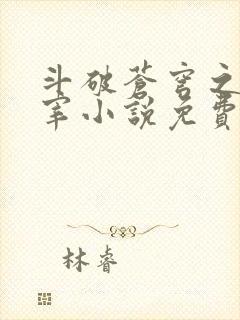 斗破蒼穹之
宰小說免費
林睿